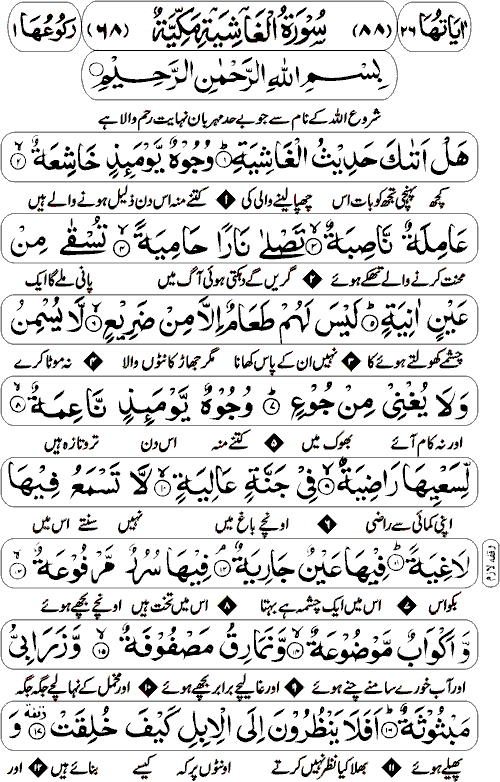 اٰیَاتُهَا ٢٦ (٨٨) سُوْرَةُ الْغَاشِیَةِ مَكِّیَّةٌ (٦٨) رُكُوْعُهَا ١
بِسْمِ اللّٰهِ الرَّحْمٰنِ الرَّحِیْمِ
شروع اللہ کے نام سے جو بے حد مہربان نہایت رحم والا ہے
هَلْ اَتٰىكَ حَدِیْثُ الْغَاشِیَةِ ١ وُجُوْهٌ یَّوْمَىِٕذٍ خَاشِعَةٌ ٢
کچھ پہنچی تجھ کو بات اس چھپا لینے والی کی ١ کتنے منہ اس دن ذلیل ہونے والے ہیں
عَامِلَةٌ نَّاصِبَةٌ ٣ تَصْلٰى نَارًا حَامِیَةً ٤ تُسْقٰى مِنْ
محنت کرنے والے تھکے ہوئے ٢ گریں گے دہکتی ہوئی آگ میں پانی ملے گا ایک
عَیْنٍ اٰنِیَةٍ ٥ لَیْسَ لَهُمْ طَعَامٌ اِلَّا مِنْ ضَرِیْعٍ ٦ لَّا یُسْمِنُ
چشمے کھولتے ہوئے کا ٣ نہیں ان کے پاس کھانا مگر جھاڑ کانٹوں والا ٤ نہ موٹا کرے
وَلَا یُغْنِیْ مِنْ جُوْعٍ ٧ وُجُوْهٌ یَّوْمَىِٕذٍ نَّاعِمَةٌ ٨
اور نہ کام آئے بھوک میں ٥ کتنے منہ اس دن تر و تازہ ہیں
لِّسَعْیِهَا رَاضِیَةٌ ٩ فِیْ جَنَّةٍ عَالِیَةٍ ١٠ لَّا تَسْمَعُ فِیْهَا
اپنی کمائی سے راضی ٦ اونچے باغ میں نہیں سنتے اس میں
لَاغِیَةً ١١ فِیْهَا عَیْنٌ جَارِیَةٌ ١٢ فِیْهَا سُرُرٌ مَّرْفُوْعَةٌ ١٣ وقف لازم
بکواس ٧ اس میں ایک چشمہ ہے بہتا اس میں تخت ہیں ٨ اونچے بچھے ہوئے
وَّ اَكْوَابٌ مَّوْضُوْعَةٌ ١٤ وَّنَمَارِقُ مَصْفُوْفَةٌ ١٥ وَّزَرَابِیُّ
اور آب خورے سامنے چنے ہوئے ٩ اور غالیچے برابر بچھے ہوئے ١٠ اور مخمل کے نہالچے جگہ جگہ
مَبْثُوْثَةٌ ١٦ اَفَلَا یَنْظُرُوْنَ اِلَى الْاِبِلِ كَیْفَ خُلِقَتْ ١٧ وَ
پھیلے ہوئے ١١ بھلا کیا نظر نہیں کرتے اونٹوں پر کہ کیسے بنائے ہیں ١٢ اور